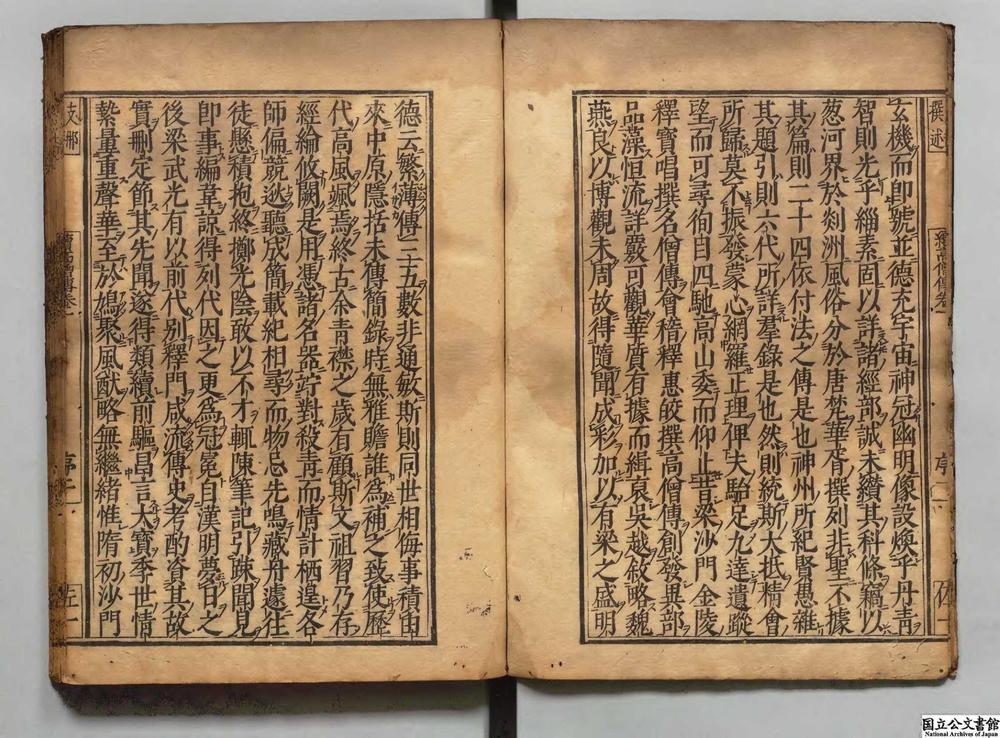 撰述
續高僧傳卷一
玄機而即號並德充宇宙神冠幽明像設煥乎丹青
智則光乎緇素固以詳諸經部誠未纘其科條竊以
葱河界於剡洲風俗分於唐梵華胥撰列非聖不據
其篇則二十四依付法之傳是也神州所紀賢愚雜
其題引則六代所詳羣錄是也然則統斯大抵精會
所歸莫不振發蒙心網羅正理俾夫駘足九達遺蹤
望而可尋徇目四馳高山委而仰止昔梁沙門金陵
釋寶唱撰名僧傳會稽釋惠皎撰高僧傳創發異部
品藻恒流詳覈可觀華質有據而緝裒吳越敘略魏
燕良以博觀未周故得隨聞成彩加以有梁之盛明
德云繁薄傳三五數非通敏斯則同世相侮事積由
來中原隱括未傳簡錄時無雅贍誰為補之致使歷
代高風颯焉終古余青襟之歲有顧斯文祖習乃存
經綸攸闕是用憑諸名器竚對殺青而情計栖遑各
師偏競逖聽成簡載紀相尋而物忌先鳴藏舟遽往
徒懸積抱終擲光陰敢以不才輒陳筆記引疎聞見
即事編韋諒得列代因之更為冠冕自漢明夢日之
後梁武光有以前代別釋門咸流傳史考酌資其故
實刪定節其先聞遂得類續前驅昌言大寶季世情
縶量重聲華至於鳩聚風猷略無繼緒惟隋初沙門
支那
續高僧傳卷一
序二
国立公文書館
National Archives of Japan